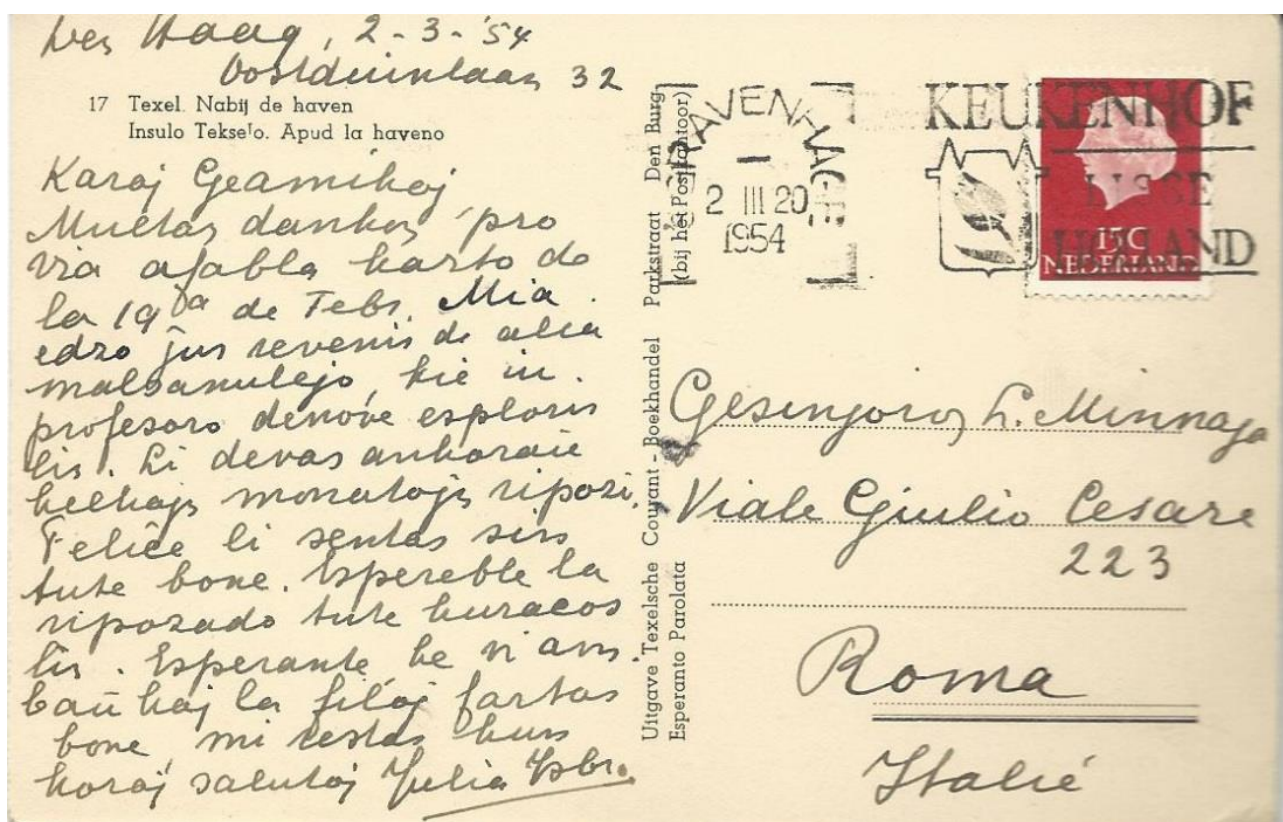 Den Haag, 2-3-'54
Oostduinlaan 32
17 Texel. Nabij de haven
Insulo Tekselo. Apud la haveno
Karaj Geamikoj
Multas dankas pro
via afabla karto de
la 19a de Febr. Mia
edzo jus revenis de alia
malsanulejo, kie iu
profesoro denove esploris
lin. Li devas ankoraŭ
kelkajn monatojn ripozi.
Feliĉe li sentas sin
tute bone. Espereble la
ripozado tute kuracos
lin. Esperante ke vi am
baŭ kaj la filoj fartas
bone, mi restas kun
koraj salutoj Julia Isbr.
Uitgave Texelsche Courant - Boekhandel Parkstraat Den Burg
Esperanto Parolata (bij het Postkantoor)
'S GRAVENHAGE
2 III 20
1954
KEUKENHOF
LISSE
HOLLAND
15C
NEDERLAND
Gesinjoroj L. Minnaja
Viale Giulio Cesare
223
Roma
Italië